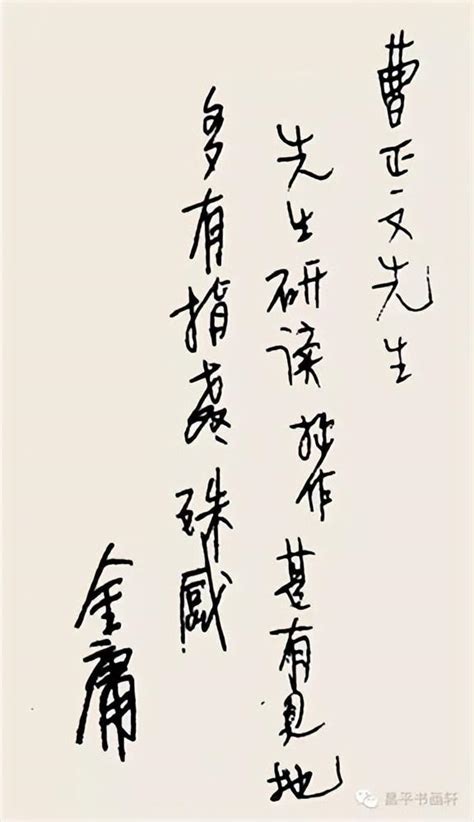 曹正文先生
先生研读拙作甚有见地
多有指教殊感
金庸
昌平书画轩